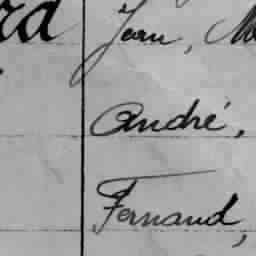 Jean,
André,
Fernand,